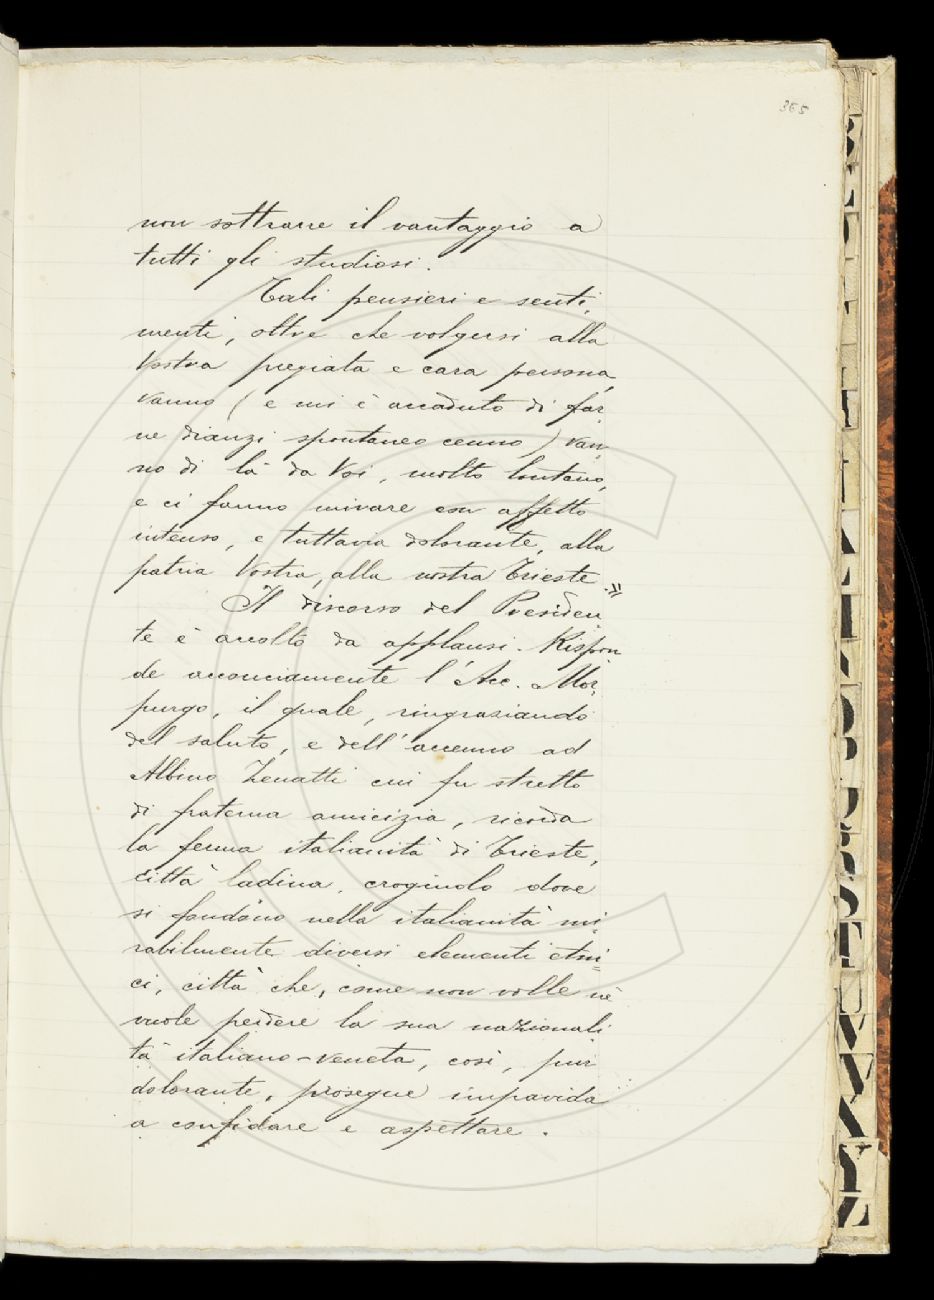 365
non sottrarre il vantaggio a
tutti gli studiosi.
Tali pensieri e senti,
menti, oltre che volgersi alla
Vostra pregiata e cara persona,
vanno (e mi è accaduto di far
ne dianzi spontaneo cenno) van,
no di là da Voi, molto lontano,
e ci fanno mirare con affetto
intenso, e tuttavia dolorante, alla
patria Vostra, alla nostra Trieste.»
Il discorso del Presiden,
te è accolto da applausi. Rispon
de acconciamente l'Acc. Mor,
purgo, il quale, ringraziando
del saluto, e dell'accenno ad
Albino Zenatti cui fu stretto
di fraterna amicizia, ricorda
la ferma italianità di Trieste,
città ladina, crogiuolo dove
si fondono nella italianità mi,
rabilmente diversi elementi etni=
ci, città che, come non volle nè
vuole perdere la sua nazionali
tà italiano-veneta, così, pur
dolorante, prosegue impavida
a confidare e aspettare.